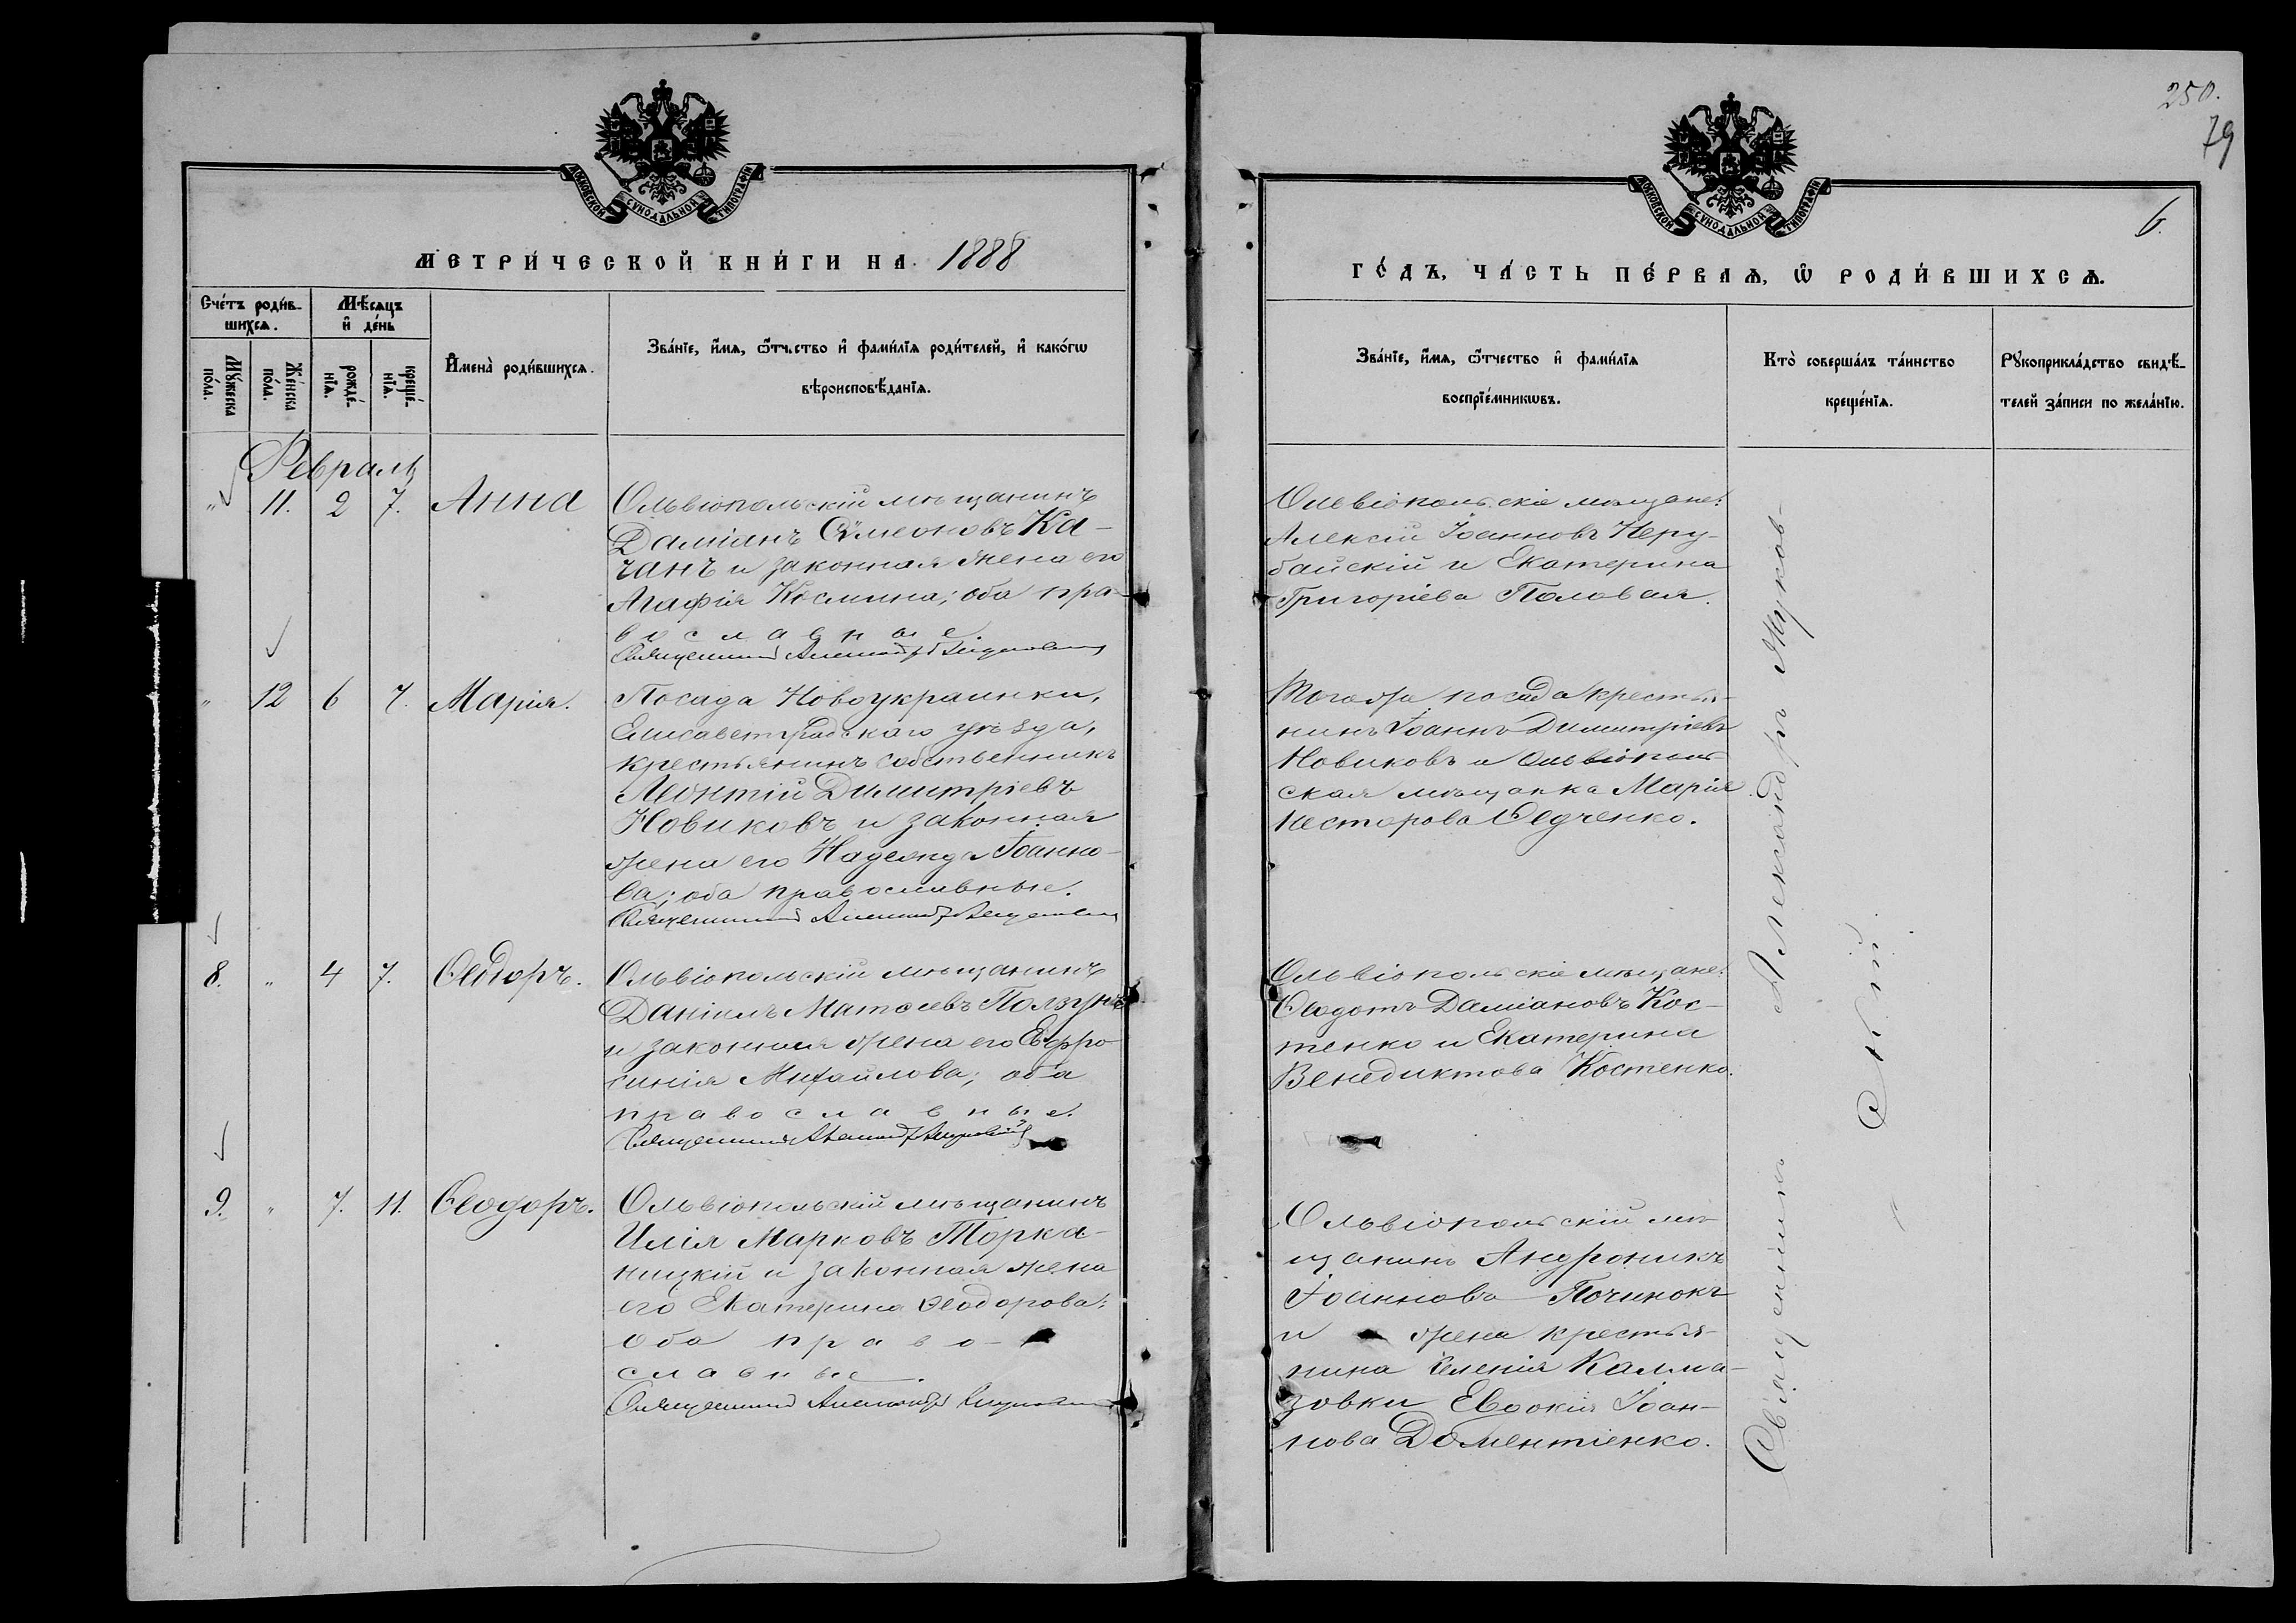 МОСКОВСКОЙ СУНОДАЛЬНОЙ ТИПОГРАФІИ
МЕТРИ́ЧЕСКОЙ КНИ́ГИ НА 1888
Сче́тъ роди́в-
шихсѧ.
Мѣ́сѧцъ
и҆ де́нь
Мꙋ́жеска
по́ла.
Же́нска
по́ла.
рожде́-
нїѧ.
креще́-
нїѧ.
И҆мена̀ роди́вшихсѧ.
Зва́нїе, и҆́мѧ, ѻ҆́тчество и҆ фами́лїѧ роди́телей, и҆ како́гѡ
вѣроисповѣ́данїѧ.
Февраль
" 11. 2 7. Анна
Ольвіопольскій мѣщанинъ
Даміанъ Сѵмеоновъ Ка-
чанъ и законная жена его
Агафія Космина; оба пра-
вославные.
Священникъ Александръ
" 12 6 7. Марія.
Посада Новоукраинки,
Елисаветградскаго уѣзда,
крестьянинъ собственникъ
Леонтій Димитріевъ
Новиковъ и законная
жена его Надежда Іоанно-
ва; оба православные.
Священникъ Александръ
8. " 4 7. Ѳеодоръ.
Ольвіопольскій мѣщанинъ
Даніилъ Матѳеевъ Ползунъ
и законная жена его Евфро-
синія Михайлова; оба
православные.
Священникъ Александръ
9. " 7. 11. Ѳеодоръ.
Ольвіопольскій мѣщанинъ
Илія Марковъ Торка-
ницкій и законная жена
его Екатерина Ѳеодорова:
оба право-
славные.
Священникъ Александръ
250.
79
МОСКОВСКОЙ СУНОДАЛЬНОЙ ТИПОГРАФІИ
6.
ГО́ДЪ, ЧА́СТЬ ПЕ́РВАѦ, Ѡ҆ РОДИ́ВШИХСѦ.
Зва́нїе, и҆́мѧ, ѻ҆́тчество и҆ фами́лїѧ
воспрїе́мникѡвъ.
Кто̀ соверша́лъ та́инство
креще́нїѧ.
Рꙋкоприкла́дство свидѣ́-
телей за́писи по жела́нїю.
Ольвіопольскіе мѣщане:
Алексій Іоанновъ Неру-
байскій и Екатерина
Григоріева Половая.
Тогоже посада крестья-
нинъ Іоаннъ Димитріевъ
Новиковъ и Ольвіополь-
ская мѣщанка Марія
Нестерова Ѳедченко.
Ольвіопольскіе мѣщане:
Ѳеодотъ Даміановъ Кос-
тенко и Екатерина
Венедиктова Костенко.
Ольвіопольскій мѣ-
щанинъ Андроникъ
Іоанновъ Починокъ
и жена крестья-
нина селенія Калма-
зовки Евдокія Іоан-
нова Доментіенко.
Священникъ Александръ